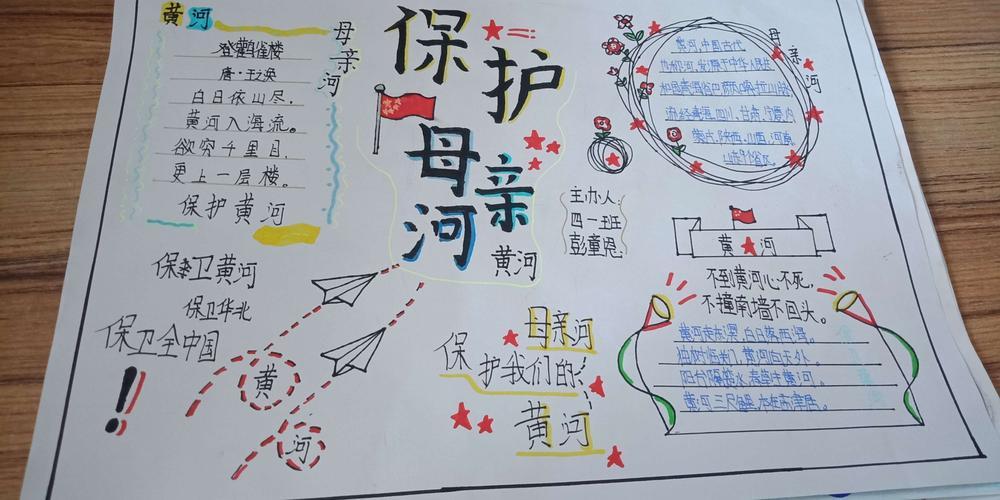 黄河
登鹳雀楼
唐·王之涣
白日依山尽,
黄河入海流。
欲穷千里目,
更上一层楼。
保护黄河
母亲河
保护
母亲
河
黄河
主办人:
四一班
彭童恩
母亲河
黄河,中国古代
流经青海,四川,甘肃,宁夏,内
蒙古,陕西,山西,河南
山东9个省区。
黄河
不到黄河心不死,
不撞南墙不回头。
黄河走东溟,白日落西海。
独树临关门,黄河向天外。
阳台隔楚水,春草生黄河。
黄河三尺鲤,本在孟津居。
保卫黄河
保卫华北
保卫全中国
!
黄
河
母亲河
保护我们的
黄河